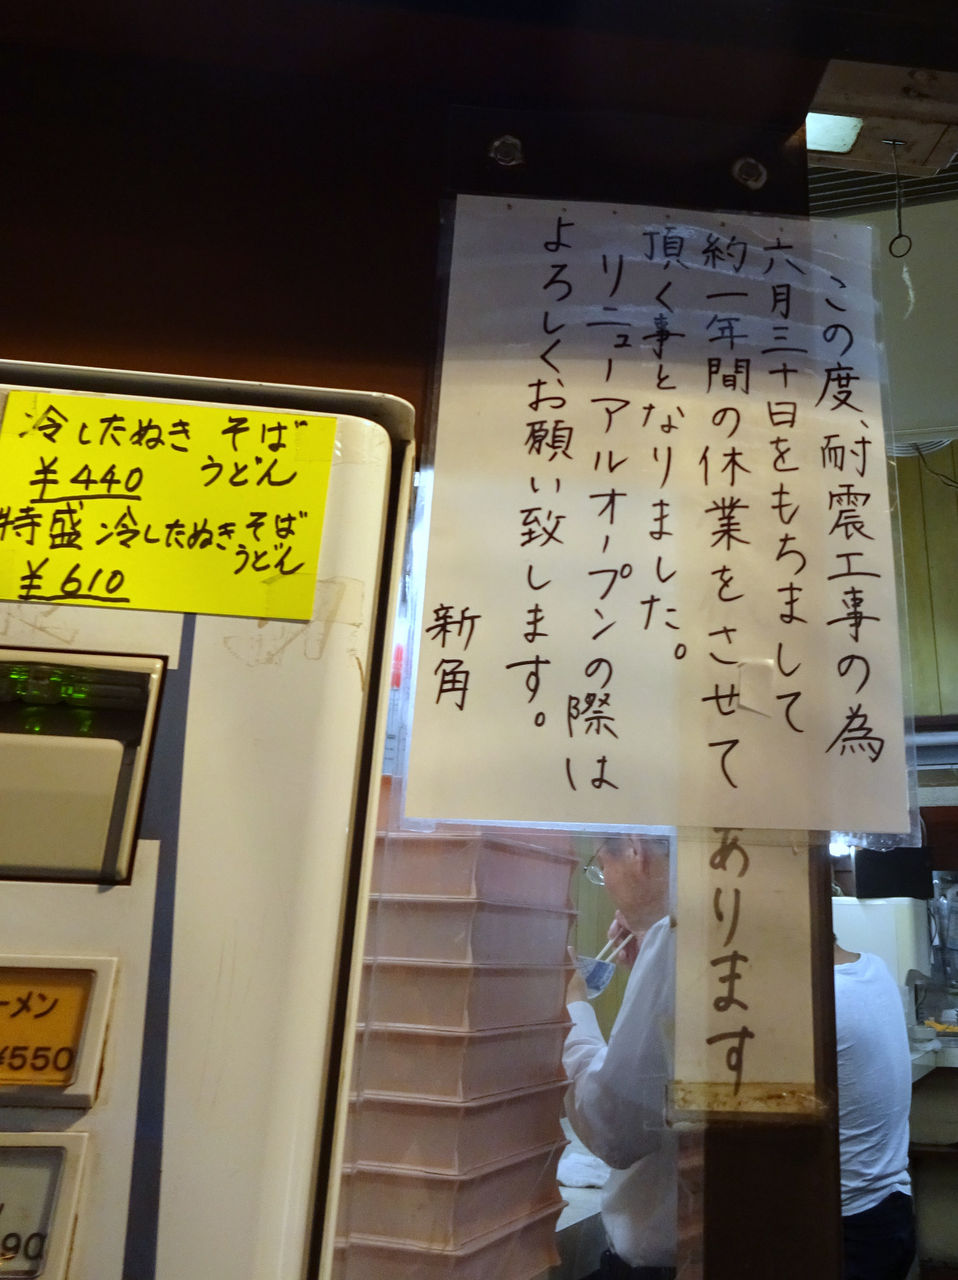 この度、耐震工事の為
六月三十日をもちまして
約一年間の休業をさせて
頂く事となりました。
リニューアルオープンの際は
よろしくお願い致します。
新角
冷したぬき そば
うどん
¥440
特盛 冷したぬき そば
うどん
¥610
あります
ーメン
¥550
90